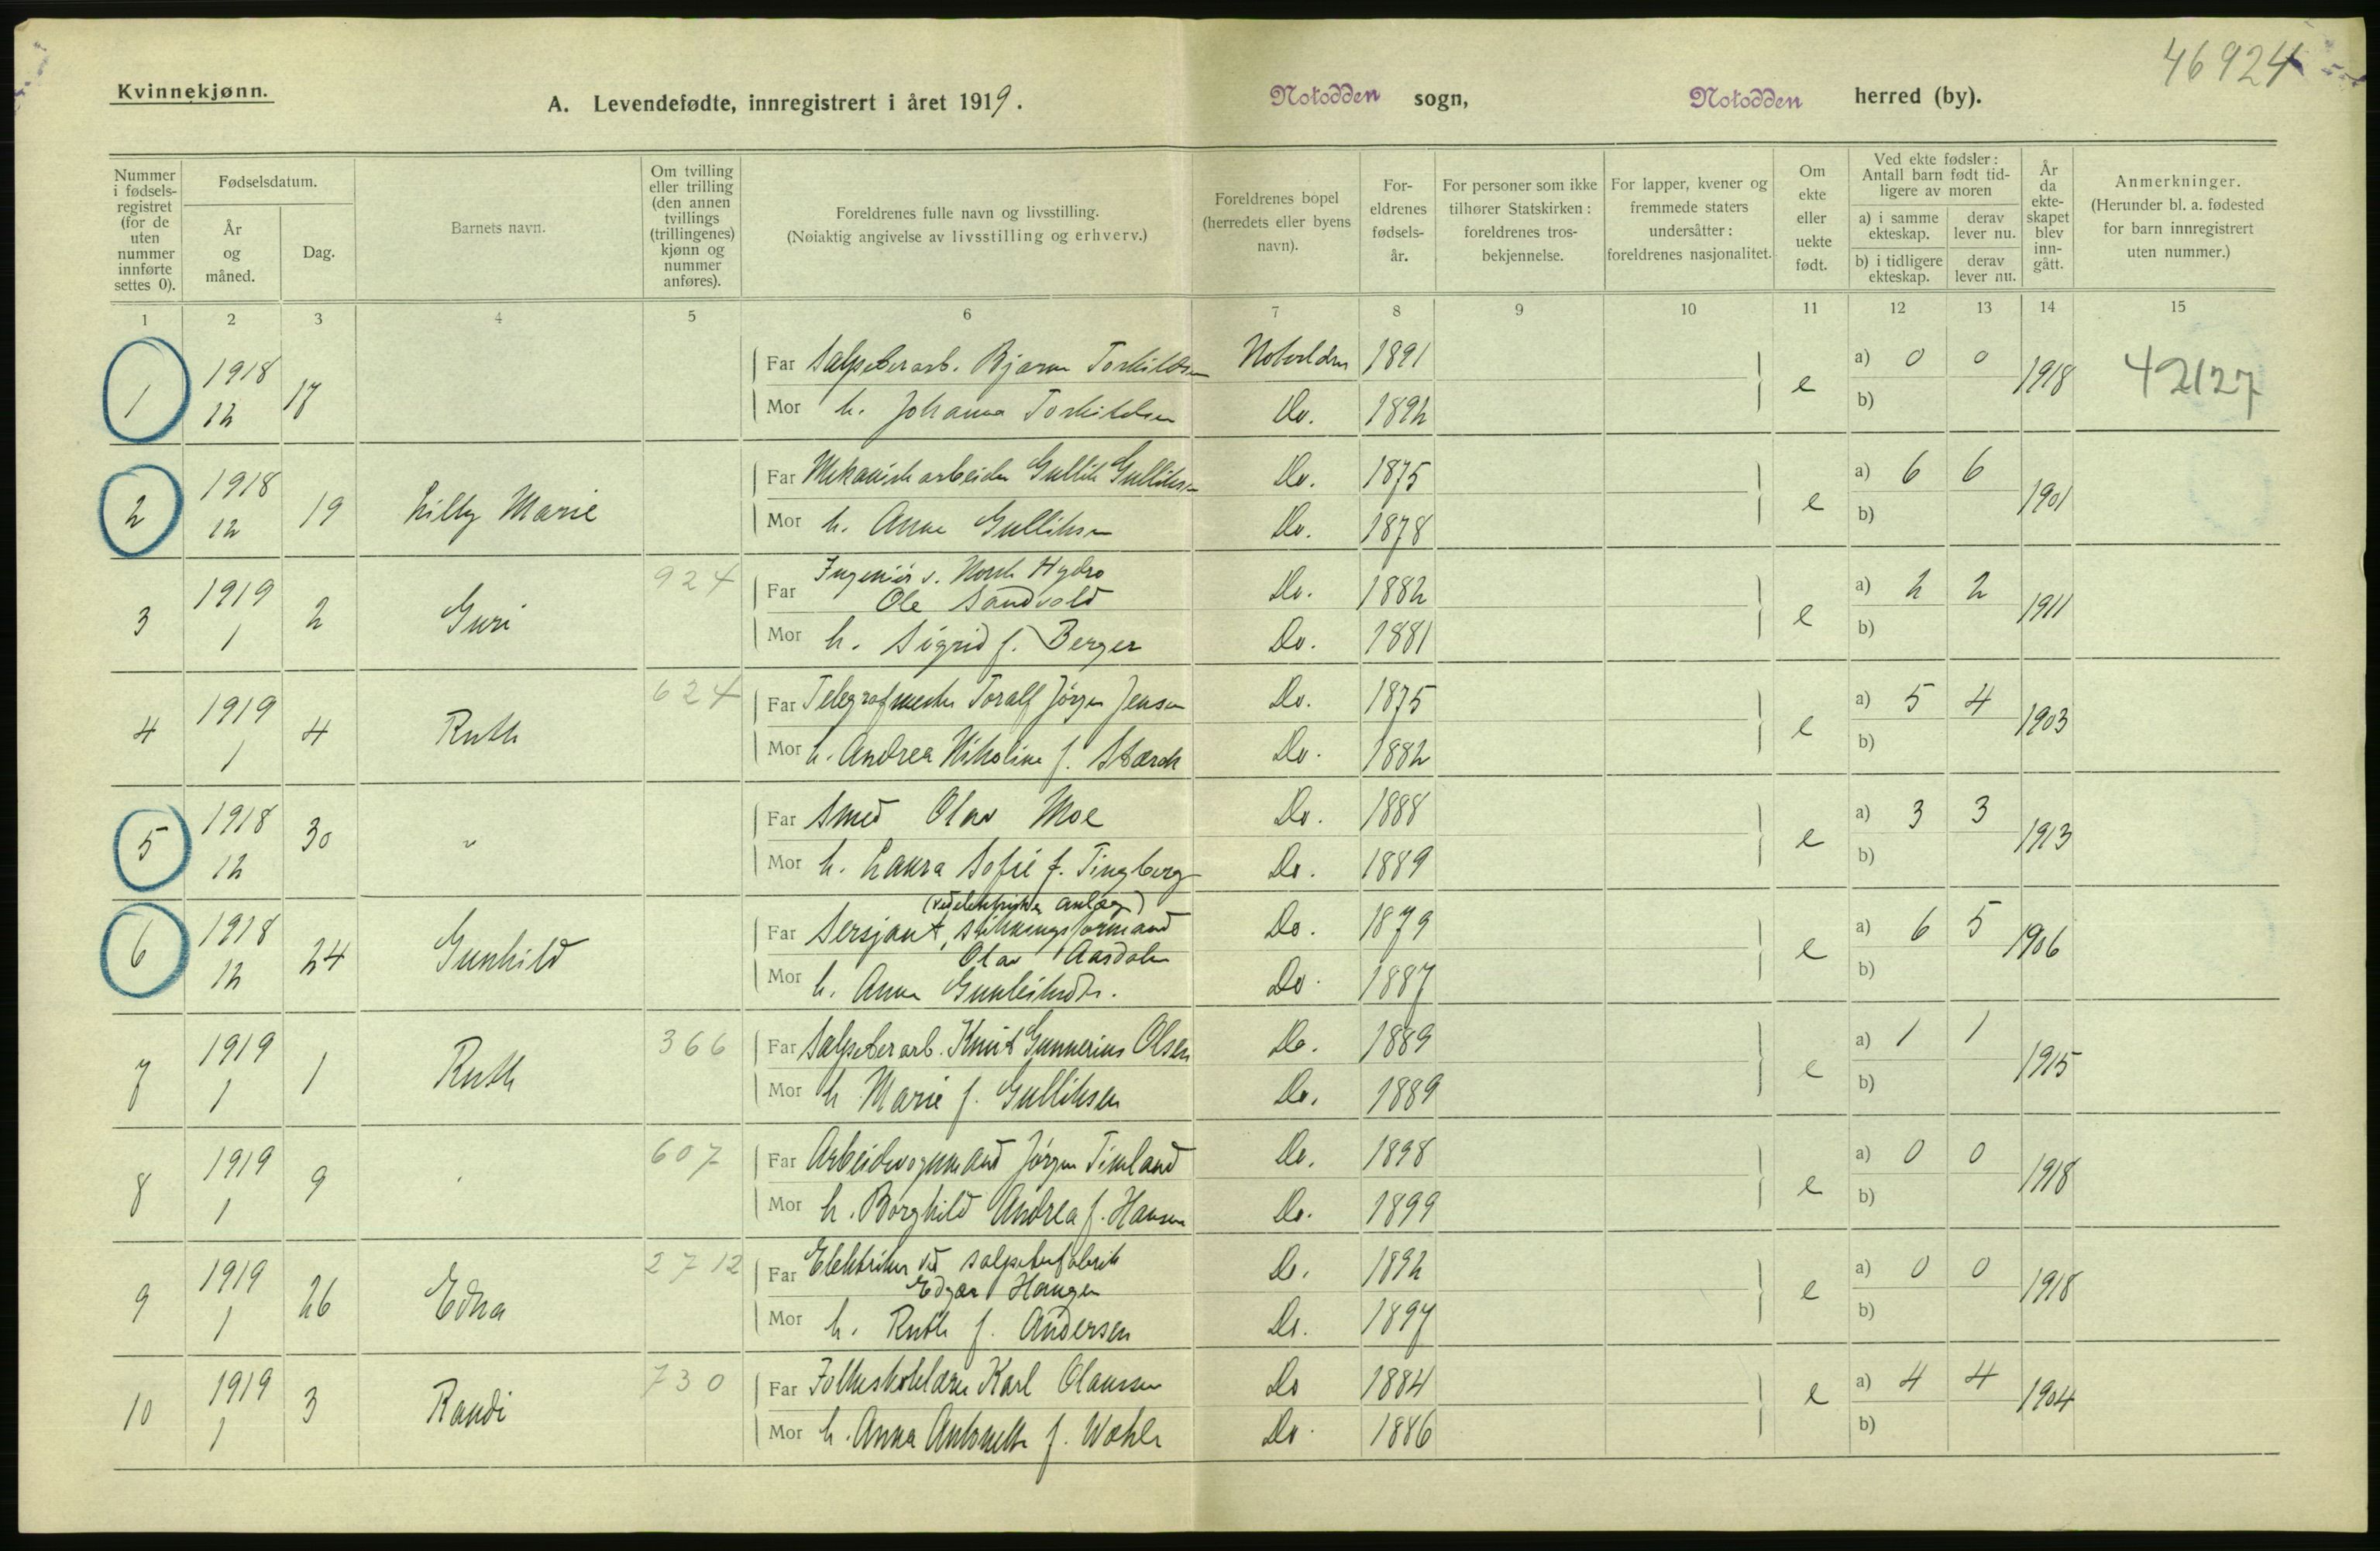 46924
Kvinnekjønn.
A. Levendefødte, innregistrert i året 1919.
Notodden sogn,
Notodden herred (by).
Nummer i fødsels-registret (for de uten nummer innførte settes 0).
Fødselsdatum.
År og måned.
Dag.
Barnets navn.
Om tvilling eller trilling (den annen tvillings (trillingenes) kjønn og nummer anføres).
Foreldrenes fulle navn og livsstilling.
(Nøiaktig angivelse av livsstilling og erhverv.)
Foreldrenes bopel (herredets eller byens navn).
For-eldrenes fødsels-år.
For personer som ikke tilhører Statskirken: foreldrenes tros-bekjennelse.
For lapper, kvener og fremmede staters undersåtter: foreldrenes nasjonalitet.
Om ekte eller uekte født.
Ved ekte fødsler: Antall barn født tid-ligere av moren
a) i samme ekteskap. derav lever nu.
b) i tidligere ekteskap. derav lever nu.
År da ekte-skapet blev inn-gått.
Anmerkninger.
(Herunder bl. a. fødested for barn innregistrert uten nummer.)
1 2 3 4 5 6 7 8 9 10 11 12 13 14 15
1 1918 12 17 Far Salpeterarb. Bjarne Torkildsen Notodden 1891 e a) 0 0 1918 42127
Mor h. Johanna Torkildsen Do. 1892 b)
2 1918 12 19 Lilly Marie Far Mekanisk arbeider Gullik Gulliksen Do. 1875 e a) 6 6 1901
Mor h. Anne Gulliksen Do. 1878 b)
3 1919 1 2 Guri 924 Far Ingeniør v. Norsk Hydro
Ole Sandvold Do. 1882 e a) 2 2 1911
Mor h. Sigrid f. Berger Do. 1881 b)
4 1919 1 4 Ruth 624 Far Telegrafmester Toralf Jörgen Jensen Do. 1875 e a) 5 4 1903
Mor h. Andrea Nikoline f. Stærk Do. 1882 b)
5 1918 12 30 " Far Smed Olav Moe Do. 1888 e a) 3 3 1913
Mor h. Laura Sofie f. Tingberg Do. 1889 b)
(ved elektriske anlæg)
6 1918 12 24 Gunhild Far Sersjant, stikningsformand
Olav Aasdalen Do. 1879 e a) 6 5 1906
Mor h. Anne Gunleiksdtr. Do. 1887 b)
7 1919 1 1 Ruth 366 Far Salpeterarb. Knut Gunnerius Olsen Do. 1889 e a) 1 1 1915
Mor h Marie f. Gulliksen Do. 1889 b)
8 1919 1 9 607 Far Arbeidsvognmand Jörgen Timland Do. 1898 e a) 0 0 1918
Mor h. Borghild Andrea f. Hansen Do. 1899 b)
9 1919 1 26 Edna 2712 Far Elektriker ved salpeterfabrik
Edgar Haugen Do. 1892 e a) 0 0 1918
Mor h. Ruth f. Andersen Do. 1897 b)
10 1919 1 3 Randi 730 Far Folkeskolelærer Karl Olaussen Do 1884 e a) 4 4 1904
Mor h. Anna Antonette f. Wæhle Do. 1886 b)